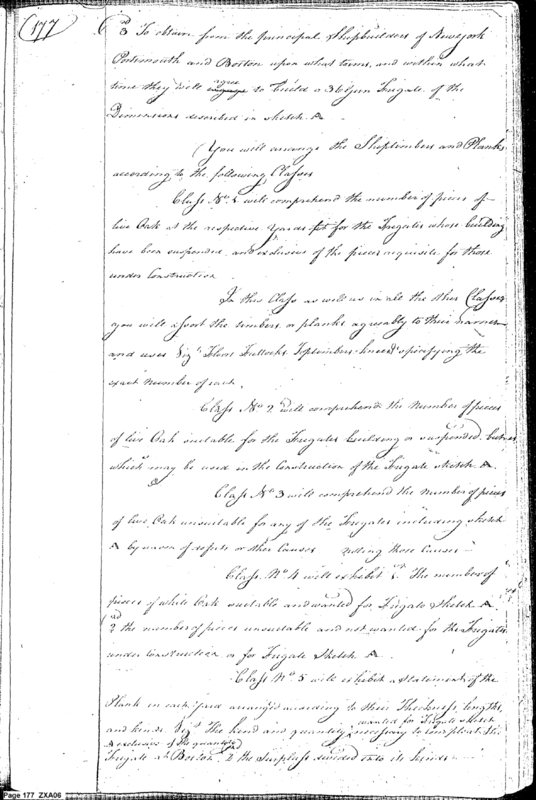 177
3 To obtain from the principal Shipbuilders of Newyork
Portsmouth and Boston upon what terms, and within what
time they will agree to build a 36 Gun Frigate of the
Dimensions described in sketch A
You will arrange the Shiptimbers and Plank
according to the following Classes
Class No 1 will comprehend the number of pieces of
live Oak at the respective Yards fit for the Frigates whose building
have been suspended, and exclusive of the pieces requisite for those
under Construction
In this Class as well as in all the other Classes
you will assort the timbers or planks agreeably to their names
and uses Vizt Floors Futtocks, Toptimbers, knees specifying the
exact number of each.
Class No 2 will comprehend the Number of pieces
of live Oak unsuitable for the Frigates building or suspended but
which may be used in the Construction of the Frigate sketch A.
Class No 3 will comprehend the number of pieces
of live Oak unsuitable for any of the Frigates including sketch
A by reason of defects or other Causes noting those Causes
Class No 4 will exhibit 1st The number of
pieces of white Oak suitable and wanted for Frigate Sketch A
2nd the number of pieces unsuitable and not wanted for the Frigates
under Construction or for Frigate Sketch A
Class No 5 will exhibit a Statement of the
Plank in each Yard arranged according to their Thickness, lengths,
and kinds. Vizt The kind and quantity wanted for Frigate sketch
A exclusive of the quantity necessary to compleat the
Frigate at Boston 2 the surpluss divided into its kinds
Page 177 ZXA06